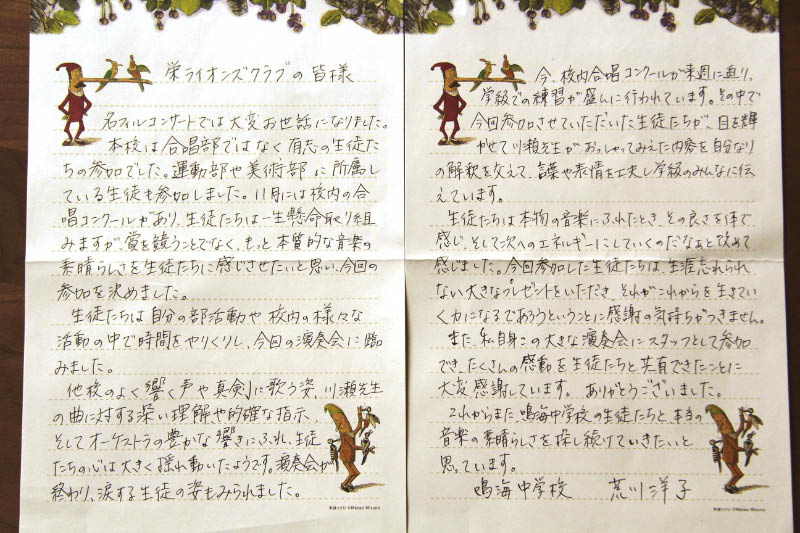 栄ライオンズクラブの皆様
名フィルコンサートでは大変お世話になりました。
本校は合唱部ではなく有志の生徒た
ちの参加でした。運動部や美術部に所属し
ている生徒も参加しました。11月には校内の合
唱コンクールがあり、生徒たちは一生懸命取り組
みますが、賞を競うことでなく、もっと本質的な音楽の
素晴らしさを生徒たちに感じさせたいと思い、今回の
参加を決めました。
生徒たちは自分の部活動や校内の様々な
活動の中で時間をやりくりし、今回の演奏会に臨
みました。
他校のよく響く声や真剣に歌う姿、川瀬先生
の曲に対する深い理解や的確な指示、
そしてオーケストラの豊かな響きにふれ、生徒
たちの心は大きく揺れ動いたようです。演奏会が
終わり、涙する生徒の姿もみられました。
今、校内合唱コンクールが来週に迫り、
学級での練習が盛んに行われています。その中で
今回参加させていただいた生徒たちが、目を輝
かせて川瀬先生がおっしゃってみえた内容を自分なり
の解釈を交えて、言葉や表情を工夫し学級のみんなに伝
えています。
生徒たちは本物の音楽にふれたとき、その良さを体で
感じ、そして次へのエネルギーにしていくのだなぁと改めて
感じました。今回参加した生徒たちは、生涯忘れられ
ない大きなプレゼントをいただき、それがこれからを生きてい
く力になるであろうということに感謝の気持ちがつきません。
また、私自身この大きな演奏会にスタッフとして参加
でき、たくさんの感動を生徒たちと共有できたことに
大変感謝しています。ありがとうございました。
これからまた、鳴海中学校の生徒たちと、本当の
音楽の素晴らしさを探し続けていきたいと
思っています。
鳴海中学校 荒川洋子